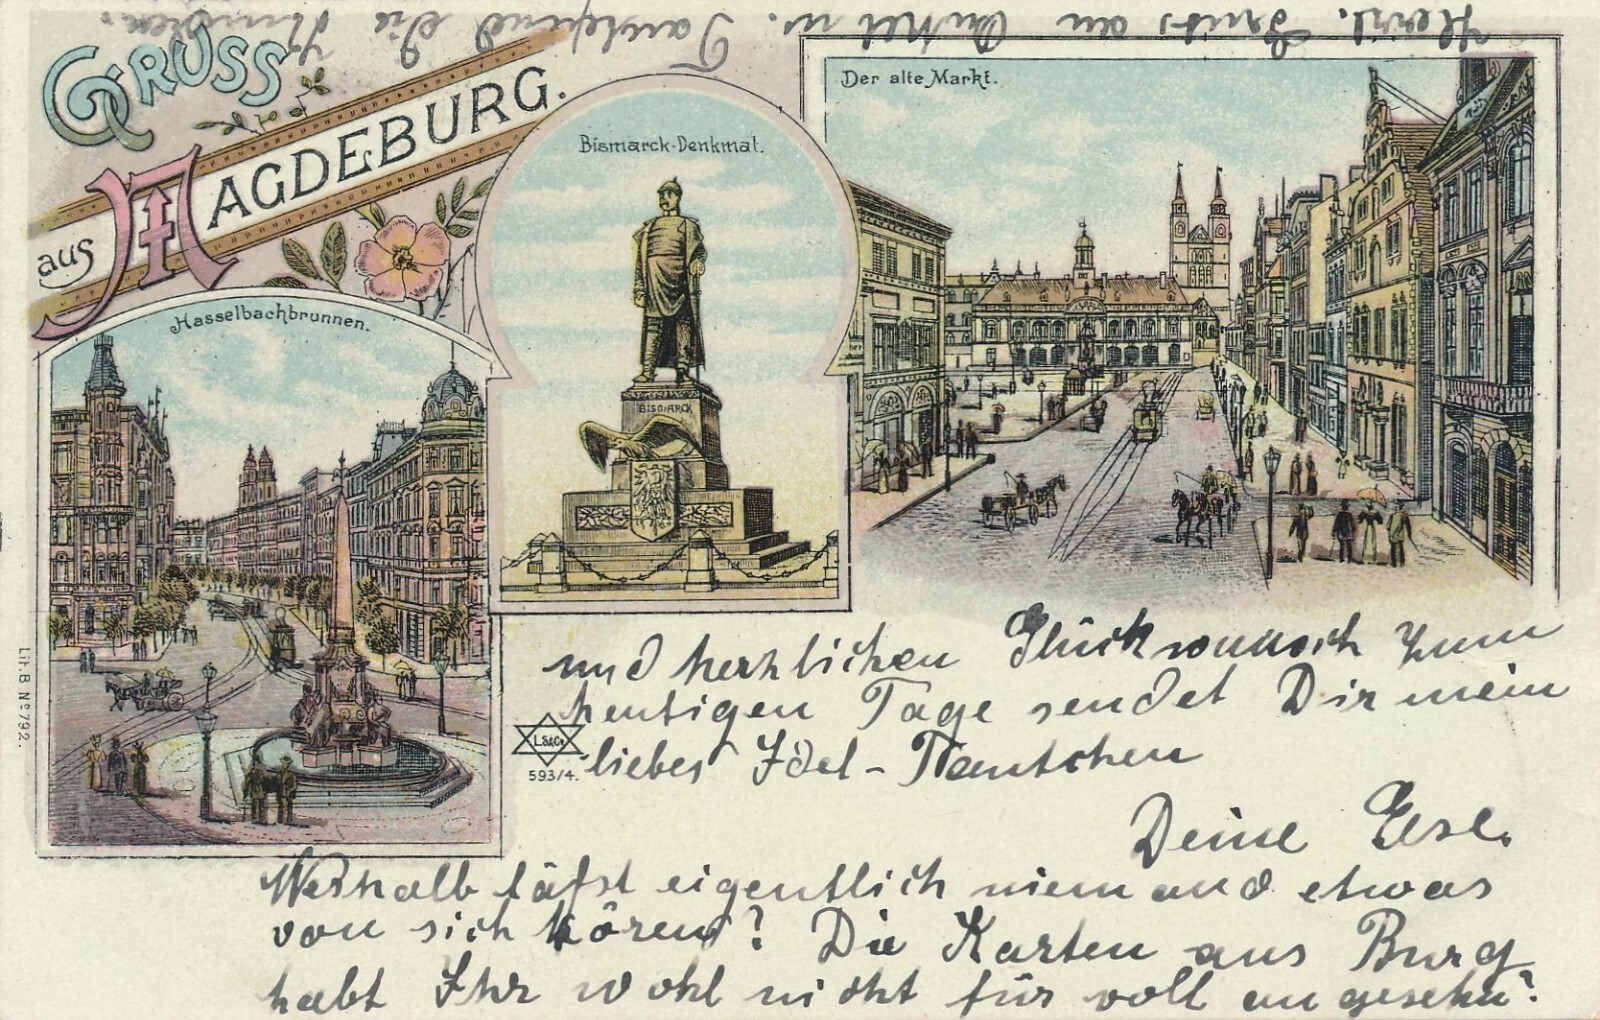 GRUSS
aus MAGDEBURG.
Hasselbachbrunnen.
Bismarck-Denkmal.
BISMARCK
Der alte Markt.
und herzlichen Glückwunsch zum
heutigen Tage sendet Dir mein
liebes Idel-Tantchen
Deine Else.
Weshalb läßst eigentlich niemand etwas
von sich hören? Die Karten aus Burg
habt Ihr wohl nicht für voll angesehn?
Herzl. Gruss an Onkel u. Tausend die
L.S&Co
593/4.
Lit.B. No 792.